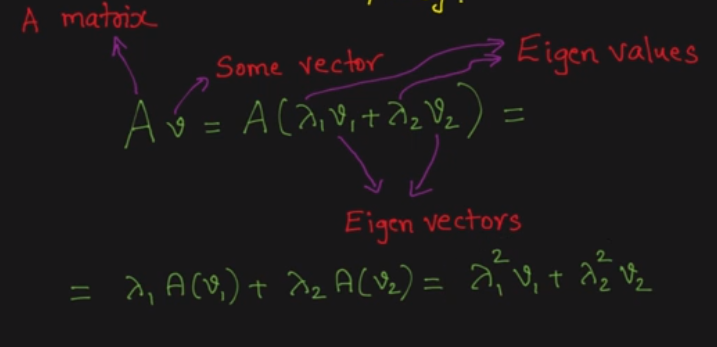 A matrix
Some vector
Eigen values
Av = A(λ₁v₁ + λ₂v₂) =
Eigen vectors
= λ₁A(v₁) + λ₂A(v₂) = λ₁²v₁ + λ₂²v₂